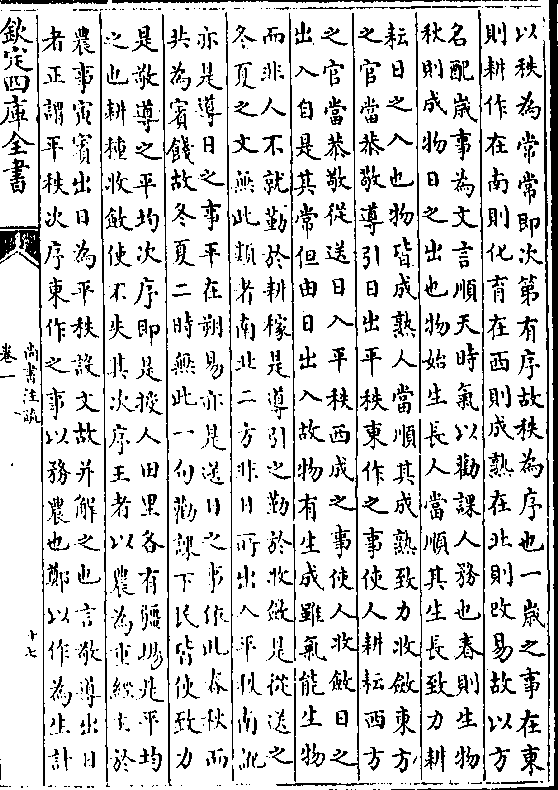 以秩為常常即次第有序故秩為序也一歲之事在東
則耕作在南則化育在西則成熟在北則改易故以方
名配歲事為文言順天時氣以勸課人務也春則生物
秋則成物日之出也物始生長人當順其生長致力耕
耘日之入也物皆成熟人當順其成熟致力收斂東方
之官當恭敬導引日出平秩東作之事使人耕耘西方
之官當恭敬從送日入平秩西成之事使人收斂日之
出入自是其常但由日出入故物有生成雖氣能生物
而非人不就勤於耕稼是導引之勤於收斂是從送之
冬夏之文無此類者南北二方非日所出入平秩南訛
亦是導日之事平在朔易亦是送日之事依此春秋而
共為賓餞故冬夏二時無此一句勸課下民皆使致力
是敬導之平均次序即是授人田里各有疆埸是平均
之也耕種收斂使不失其次序王者以農為重經主於
農事寅賓出日為平秩設文故并解之也言敬導出日
者正謂平秩次序東作之事以務農也鄭以作為生計
欽定四庫全書
尚書注疏
卷一
十七